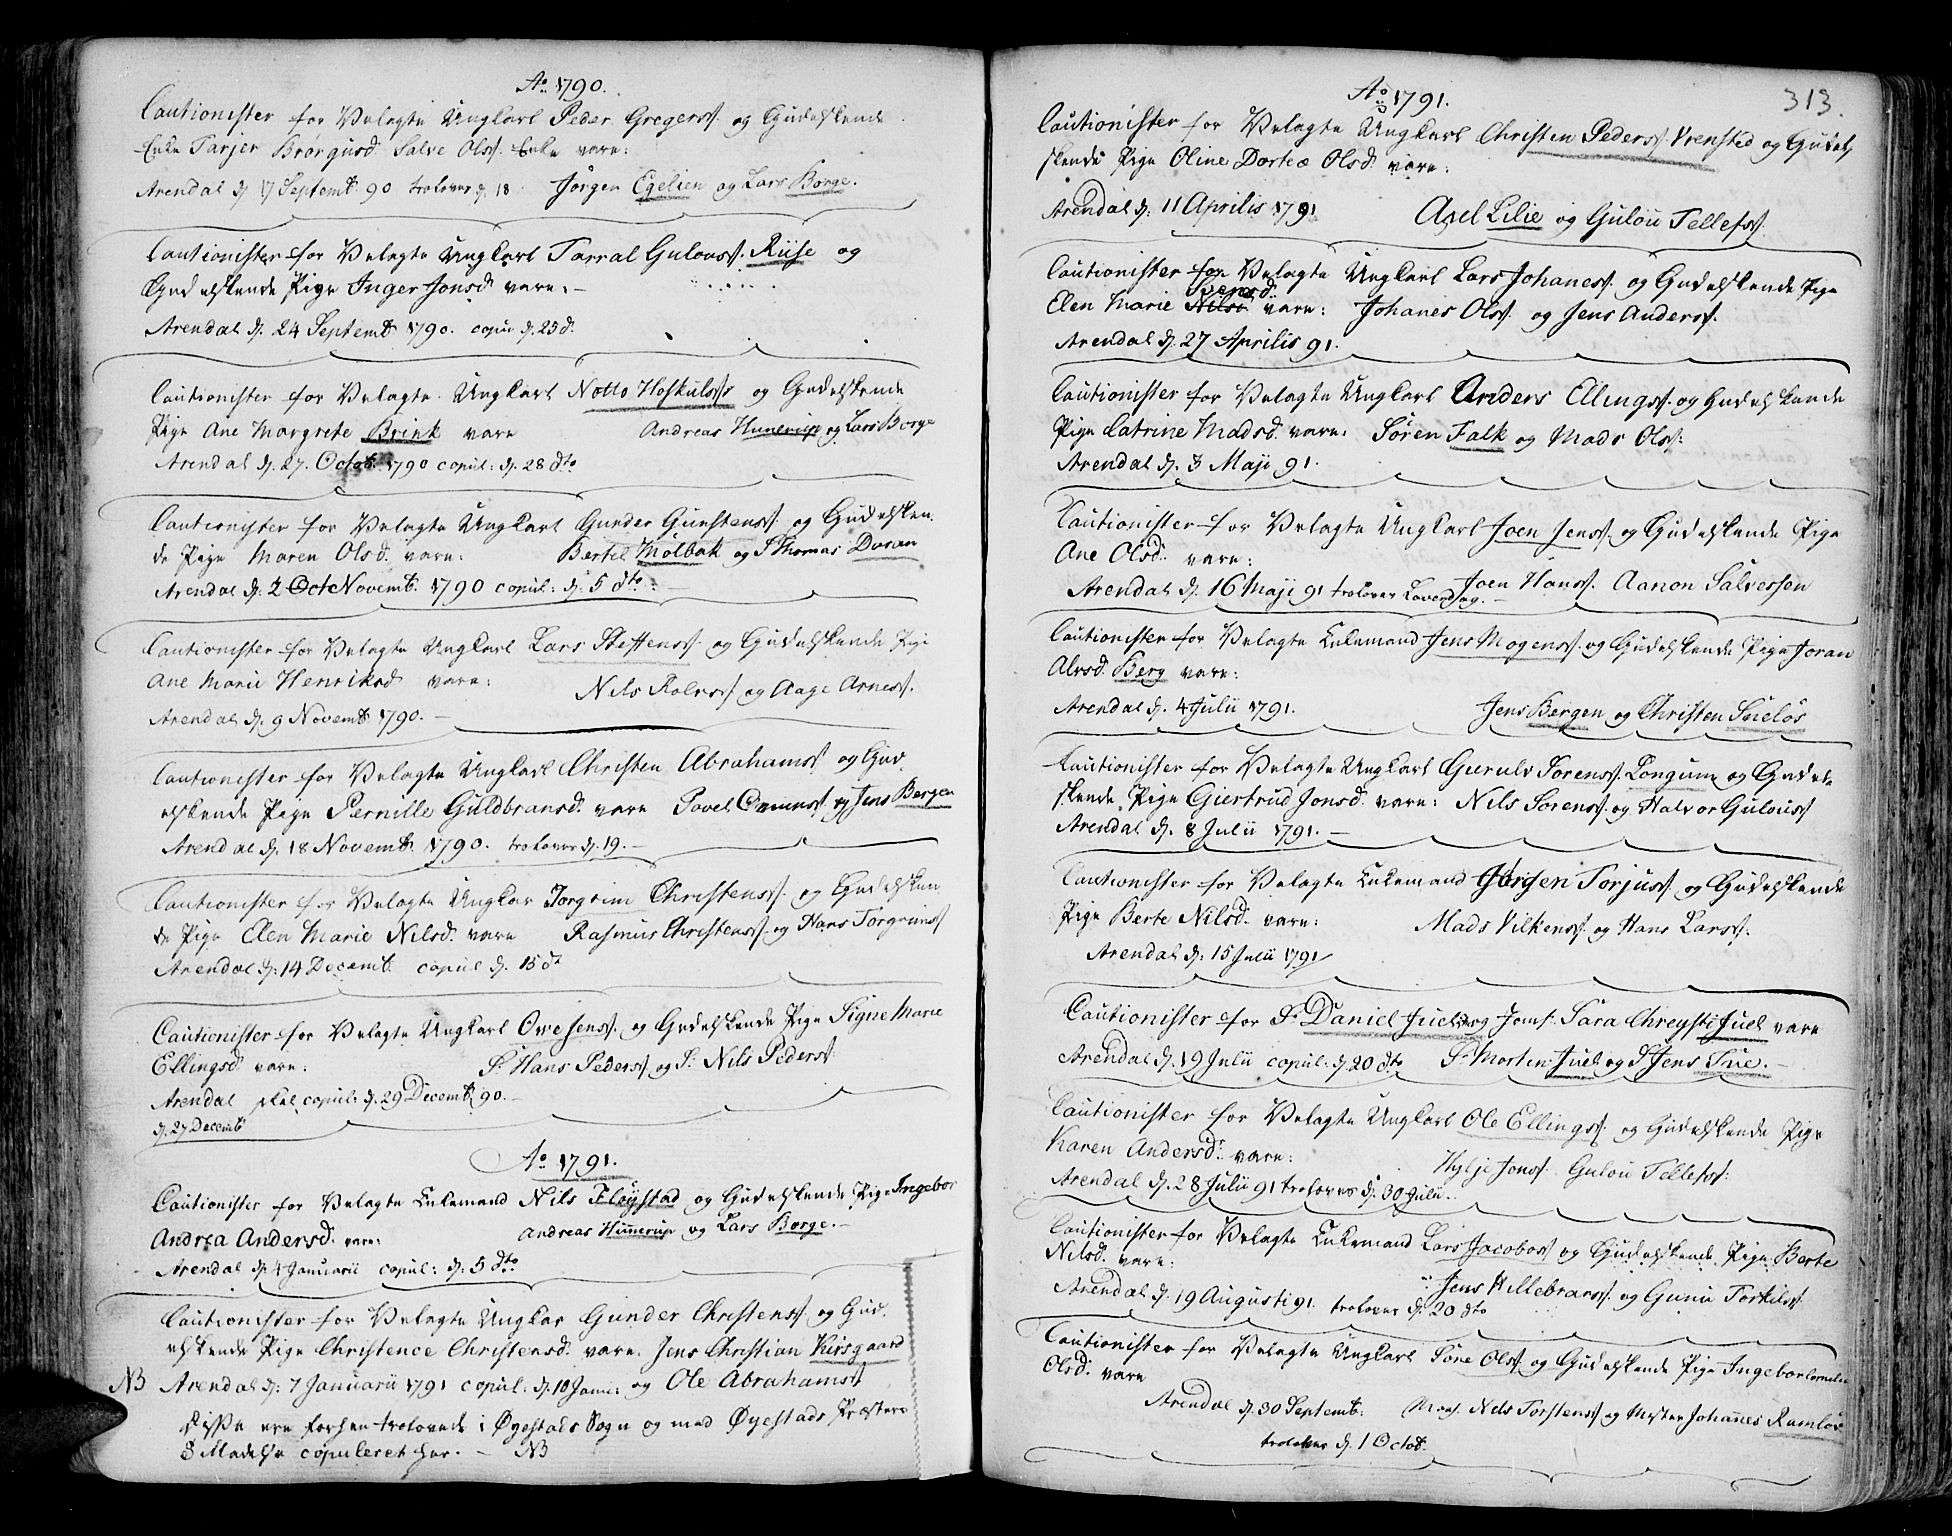 Ao 1790.
Cautionister for Velagte Ungkarl Peder Gregerss. og Gudelskende
Enke Tarjer Brorgusd. Salve Olss. Enke vare:
Arendal d. 17 Septemb. 90 troloves d. 18. Jørgen Egelien og Lars Borge.
Cautionister for Velagte Ungkarl Tarral Gulouss. Riise og
Gudelskende Pige Inger Jonsd. vare:-
Arendal d. 24 Septemb. 1790. copul: d. 25 d.
Cautionister for Velagte Ungkarl Notto Hofkulss. og Gudelskende
Pige Ane Margrete Brink vare Andreas Hunerup og Lars Borge
Arendal d. 27. Octob. 1790 copul: d. 28 dto
Cautionister for Velagte Ungkarl Gunder Gunstenss. og Gudelsken-
de Pige Maren Olsd. vare: Bertel Mølbak og S. Thomas Duran
Arendal d: 2 Oct Novemb. 1790 copul: d. 5 dto.-
Cautionister for Velagte Ungkarl Lars Steffenss. og Gudelskende Pige
Ane Marie Henriksd. vare: Nils Rolvss. og Aage Arness.
Arendal d. 9 Novemb. 1790.-
Cautionister for Velagte Ungkarl Christen Abrahamss. og Gud-
elskende Pige Pernille Guldbransd. vare Povel Omunss. og Jens Bergen
Arendal d. 18 Novemb. 1790. troloves d. 19.-
Cautionister for Velagte Ungkar Torgrim Christenss. og Gudelsken-
de Pige Elen Marie Nilsd. vare Rasmus Christenss. og Hans Torgrimss.
Arendal d: 14 Decemb. copul d. 15 dt
Cautionister for Velagte Ungkarl Owe Jenss. og Gudelskende Pige Signe Marie
Ellingsd. vare: Sr. Hans Pederss. og Sr. Nils Pederss.
Arendal skal copul: d. 29 Decemb. 90.-
d. 27 Decemb
Ao 1791.
Cautionister for Velagte Enkemand Nils Fløystad og Gudelskende Pige Ingebor
Andrea Andersd. vare: Andreas Hunerup og Lars Borge.-
Arendal d. 4 Januarii copul: d: 5 dto
Cautionister for Velagte Ungkar Gunder Christenss. og Gud-
elskende Pige Christence Christensd. vare: Jens Christian Kirsgaard
NB Arendal d: 7 Januarii 1791 copul: d. 10 Janu: og Ole Abrahamss.
disse ere forhen trolovede i Øyestads Sogn og med Øyestads Præstens
Tilladelse copuleret her.- NB
Ao 1791.
313.
Cautionister for Velagte Ungkarl Christen Pederss. Vrensted og Gudel-
skende Pige Oline Dorteæ Olsd. vare:
Arendal d: 11 Aprilis 1791 Axel Lilie og Gulou Tellefss.
Cautionister for Velagte Ungkarl Lars Johaness. og Gudelskende Pige
Elen Marie Nilsd vare: Johanes Olss. og Jens Anderss.
Arendal d. 27 Aprilis 91.
Cautionister for Velagte Ungkarl Anders Ellingss. og Gudelskende
Pige Catrine Madsd. vare: Søren Falk og Mads Olss.
Arendal d. 3 Maji 91.
Cautionister for Velagte Ungkarl Joen Jenss. og Gudelskende Pige
Ane Olsd. vare:
Arendal d. 16 Maji 91 troloves Løverdag.- Joen Hanss. Aanon Salvessen
Cautionister for Velagte Enkemand Jens Mogenss. og Gudelskende Pige Joran
Alvsd. Berg vare:
Arendal d. 4 Julii 1791. Jens Bergen og Christen Sneløs
Cautionister for Velagte Ungkarl Gurulv Sørenss. Longum og Gudel-
skende Pige Giertrud Jonsd. vare: Nils Sørenss. og Halvor Gulouss.
Arendal d. 8 Julii 1791.-
Cautionister for Velagte Enkemand Jørgen Torjuss. og Gudelskende
Pige Berte Nilsd. vare: Mads Vilkenss. og Hans Larss.
Arendal d: 15 Julii 1791
Cautionister for Sr. Daniel Juel og Jomf. Sara Chreysti Juel vare
Arendal d. 19 Julii copul: d. 20 dto Sr. Morten Juel og S. Jens Tue.-
Cautionister for Velagte Ungkarl Ole Ellingss. og Gudelskende Pige
Karen Andersd. vare: Hylje Jonss. Gulou Tellefss.
Arendal d. 28 Julii 91 troloves d. 30 Julii.
Cautionister for Velagte Enkemand Lars Jacobss. og Gudelskende Pige Berte
Nilsd. vare: Jens Hillebranss. og Gunu Torkilss.
Arendal d. 19 Augusti 91. troloves d. 20 dto
Cautionister for Velagte Ungkarl Søne Olss. og Gudelskende Pige Ingebor Cornelia
Olsd. vare
Arendal d. 30 Septemb: Mons. Nels Torstenss. og Mester Johannes Ramløv
troloves d. 1 Octob.